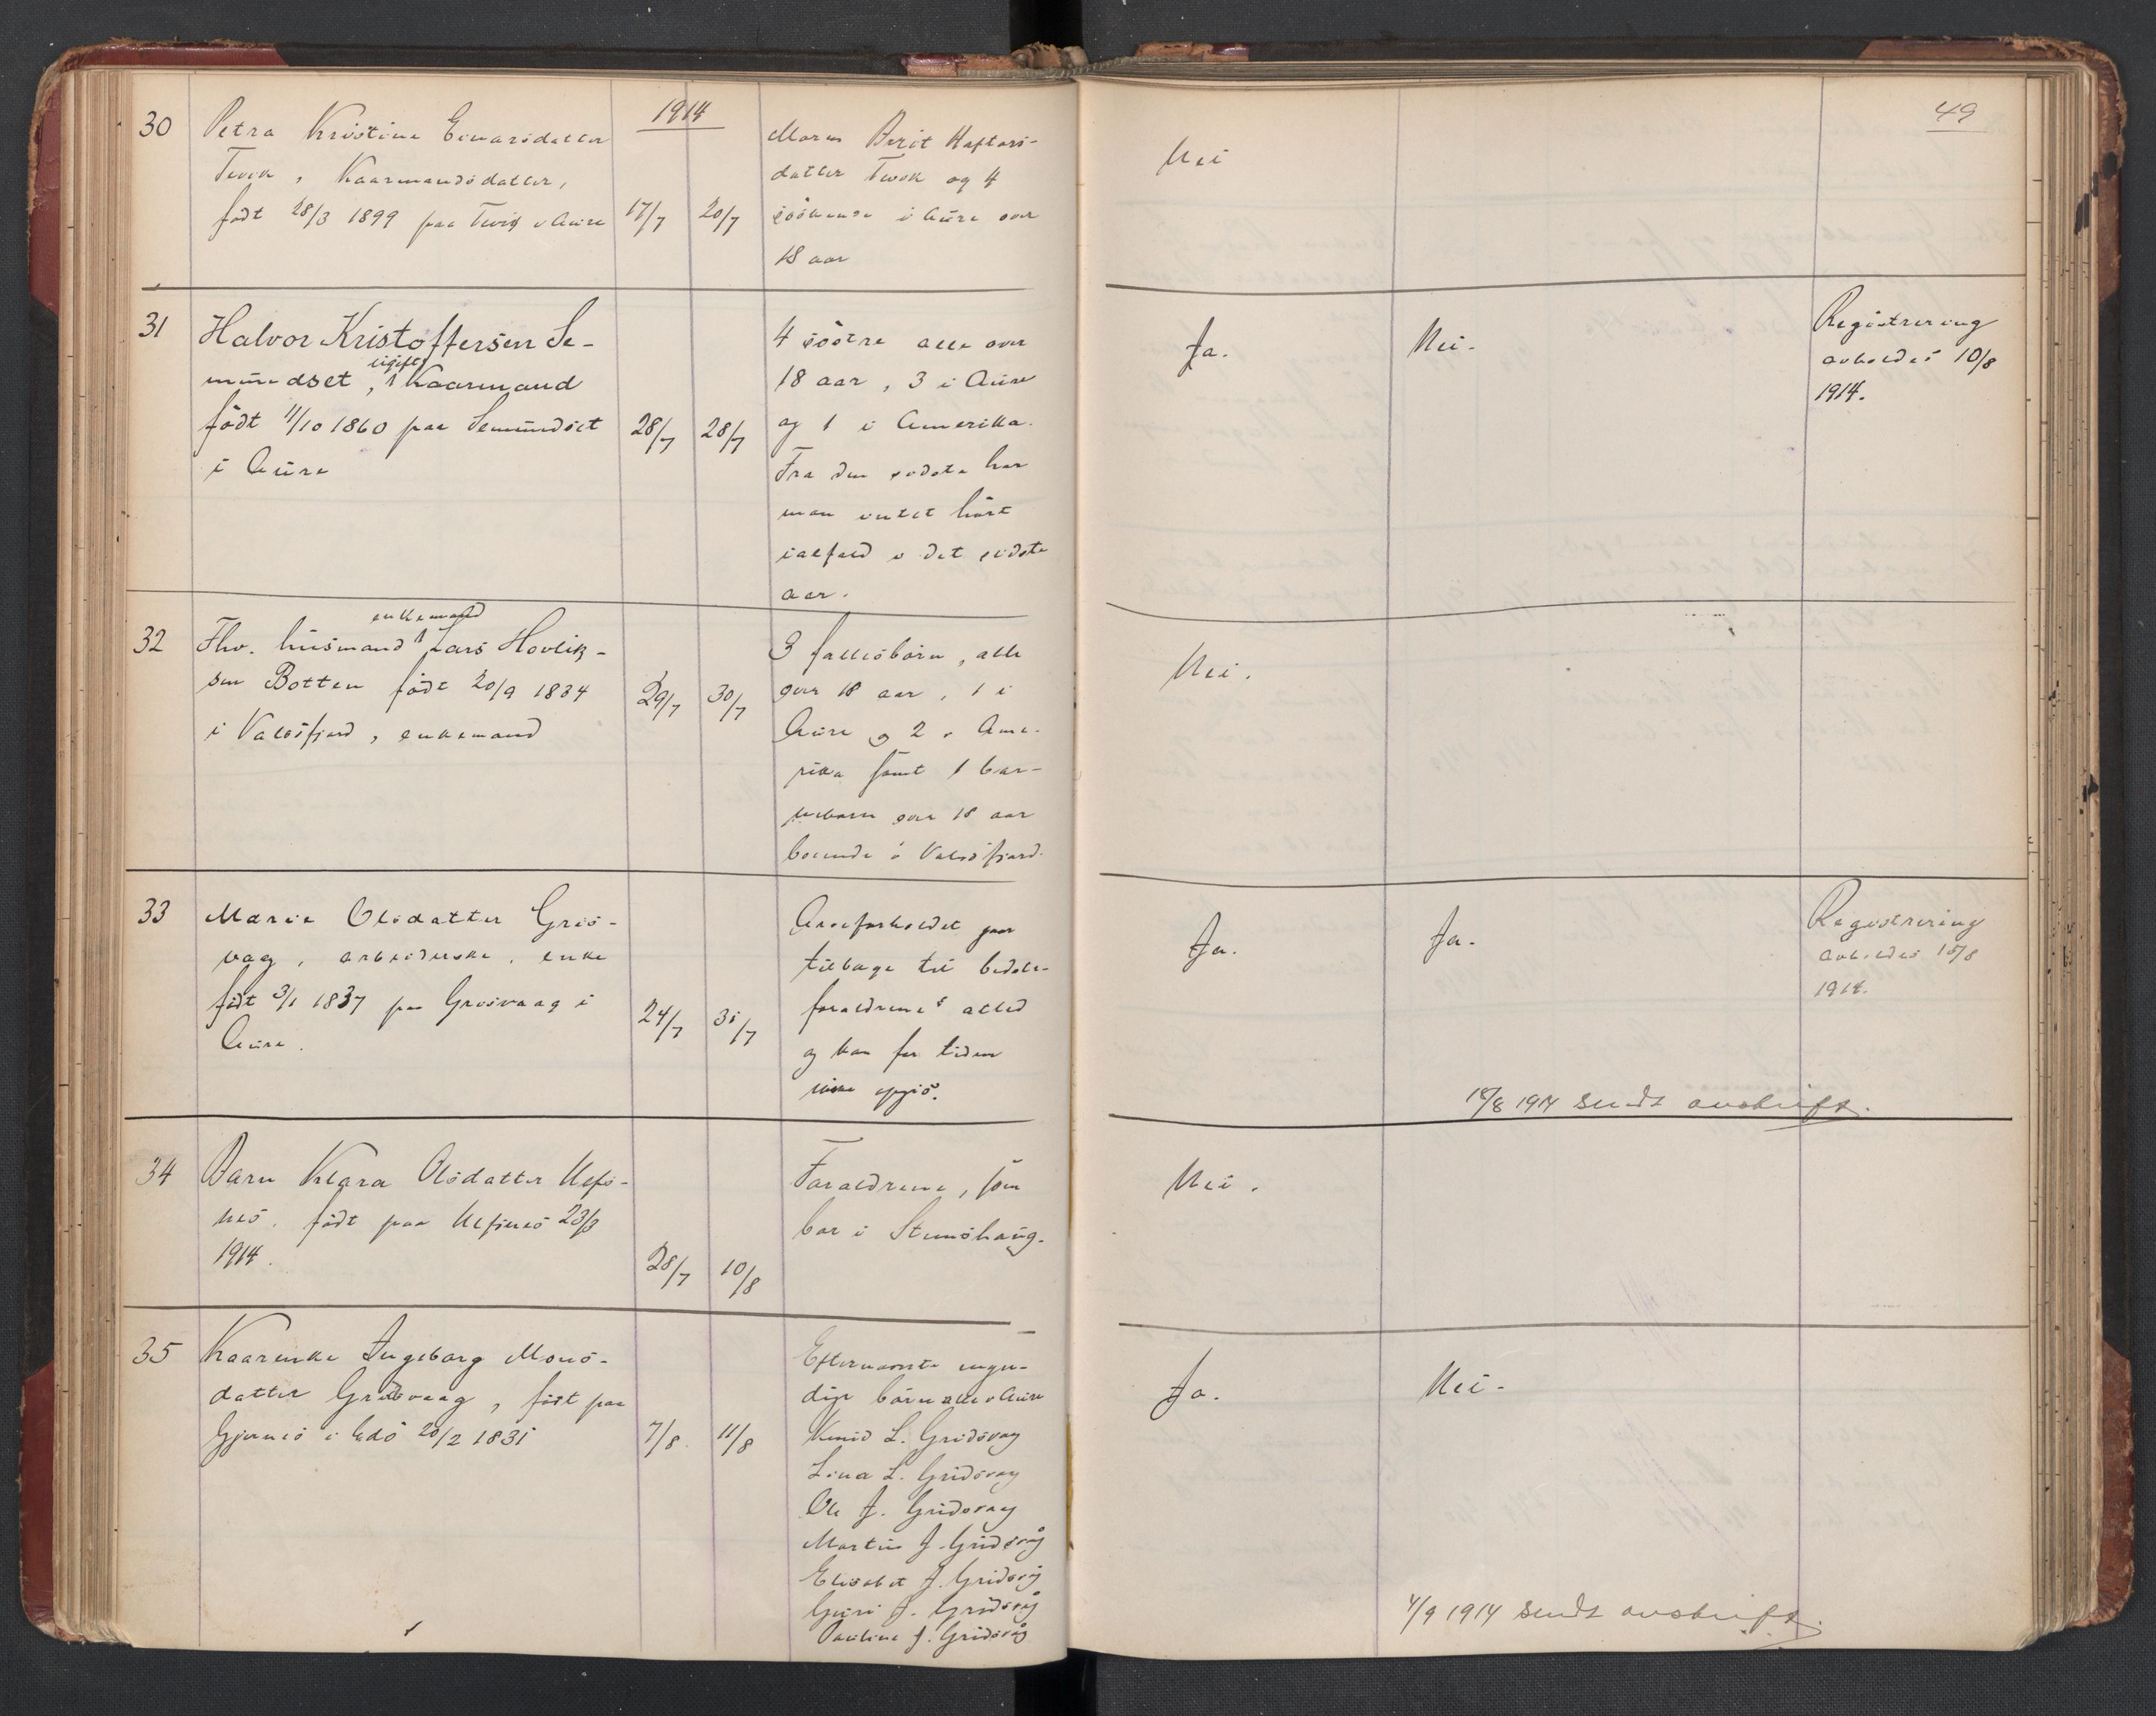 49
1914
30 Petra Kristine Einarsdatter
Tevik, Kaarmandsdatter,
født 28/3 1899 paa Tevik i Aure 17/7 20/7
Moren Berit Haftors-
datter Tevik og 4
søskende i Aure over
18 aar
Nei
31 Halvor Kristoffersen Se-
mundset, ugift Kaarmand
født 11/10 1860 paa Semundset 28/7 28/7
i Aure
4 søstre alle over
18 aar, 3 i Aure
og 1 i Amerika.
Fra den sidste har
man intet hørt
ialfald i det sidste
aar.
Ja. Nei.
Registrering
avholdes 10/8
1914.
32 Fhv. husmand enkemand Lars Hovlik-
sen Botten født 20/9 1834 29/7 30/7
i Valsøfjord, enkemand
3 fællesbørn, alle
over 18 aar, 1 i
Aure og 2 i Ame-
rika samt 1 bar-
nebarn over 18 aar
boende i Valsøfjord.
Nei.
33 Marie Olsdatter Gris-
vag, arbeiderske, enke
født 3/1 1837 paa Grisvaag i 24/7 31/7
Aure.
Arveforholdet gaar
tilbage til bedste-
forældrenes atled
og kan for tiden
ikke opgis.
Ja. Ja.
Registrering
avholdes 15/8
1914.
18/8 1914 sendt avskrift.
34 Barn Klara Olsdatter Ulfs-
nes, født paa Ulfsnes 23/3
1914. 28/7 10/8
Forældrene, som
bor i Stemshaug.
Nei.
35 Kaarenke Ingeborg Mons-
datter Gridsvaag, født paa
Gjernes i Edø 20/2 1831 7/8. 11/8
Efternævnte myn-
dige børn alle i Aure
L. Gridsvag
Lina L. Gridsvag
Ole J. Gridsvag
Martin J. Gridsvåg
Elisabet J. Gridsvåg
Guri J. Gridsvåg
Pauline J. Gridsvåg
Ja. Nei.
4/9 1914 sendt avskrift.